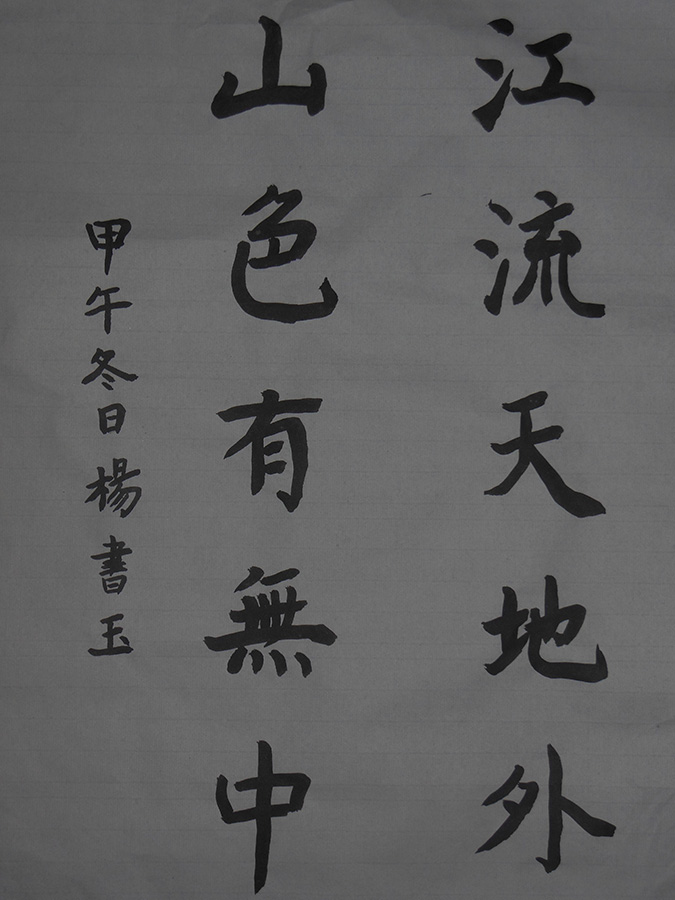 江流天地外
山色有無中
甲午冬日楊書玉